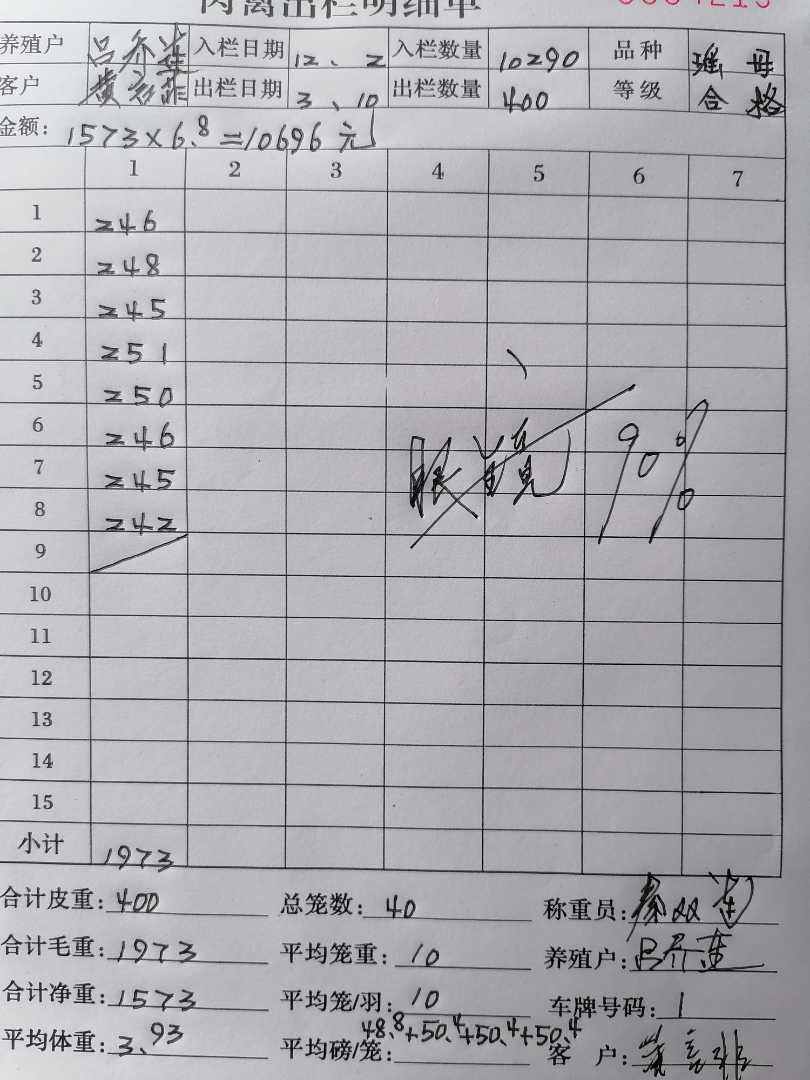 肉禽出栏明细单
养殖户 吕乔莲 入栏日期 12、2 入栏数量 10290 品种 瑶母
客户 出栏日期 3、10 出栏数量 400 等级 合格
金额: 1573×6.8=10696元
1 2 3 4 5 6 7
1 246
2 248
3 245
4 251
5 250
6 246
7 245
8 242
9
90%
10
11
12
13
14
15
小计 1973
合计皮重: 400 总笼数: 40 称重员:
合计毛重: 1973 平均笼重: 10 养殖户:
合计净重: 1573 平均笼/羽: 10 车牌号码: 1
平均体重: 3.93 平均磅/笼: 48.8+50.4+50.4+50.4 客 户: